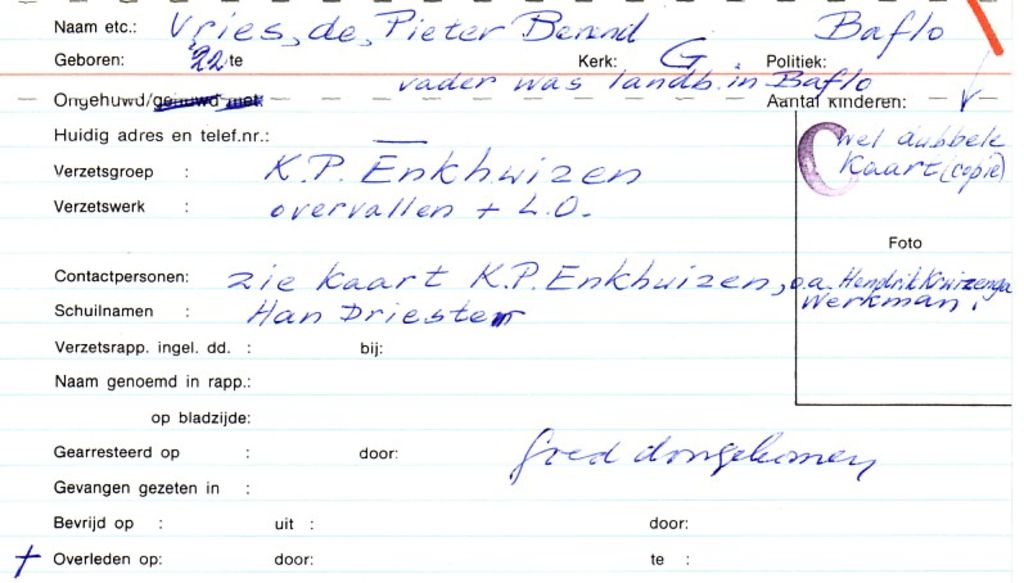 Naam etc.: Vries, de, Pieter Berend Baflo
Geboren: 22 te Kerk: G Politiek:
vader was landb. in Baflo
Ongehuwd/gehuwd met Aantal kinderen:
Huidig adres en telef.nr.: —
C wel dubbele
kaart (copie)
Verzetsgroep : K.P. Enkhuizen
Verzetswerk : overvallen + L.O.
Foto
Contactpersonen: zie kaart K.P. Enkhuizen, o.a. Hendrik Kruizenga
Werkman.
Schuilnamen : Han Driester
Verzetsrapp. ingel. dd. : bij:
Naam genoemd in rapp.:
op bladzijde:
Gearresteerd op : door: goed
Gevangen gezeten in :
Bevrijd op : uit : door:
† Overleden op: door: te :